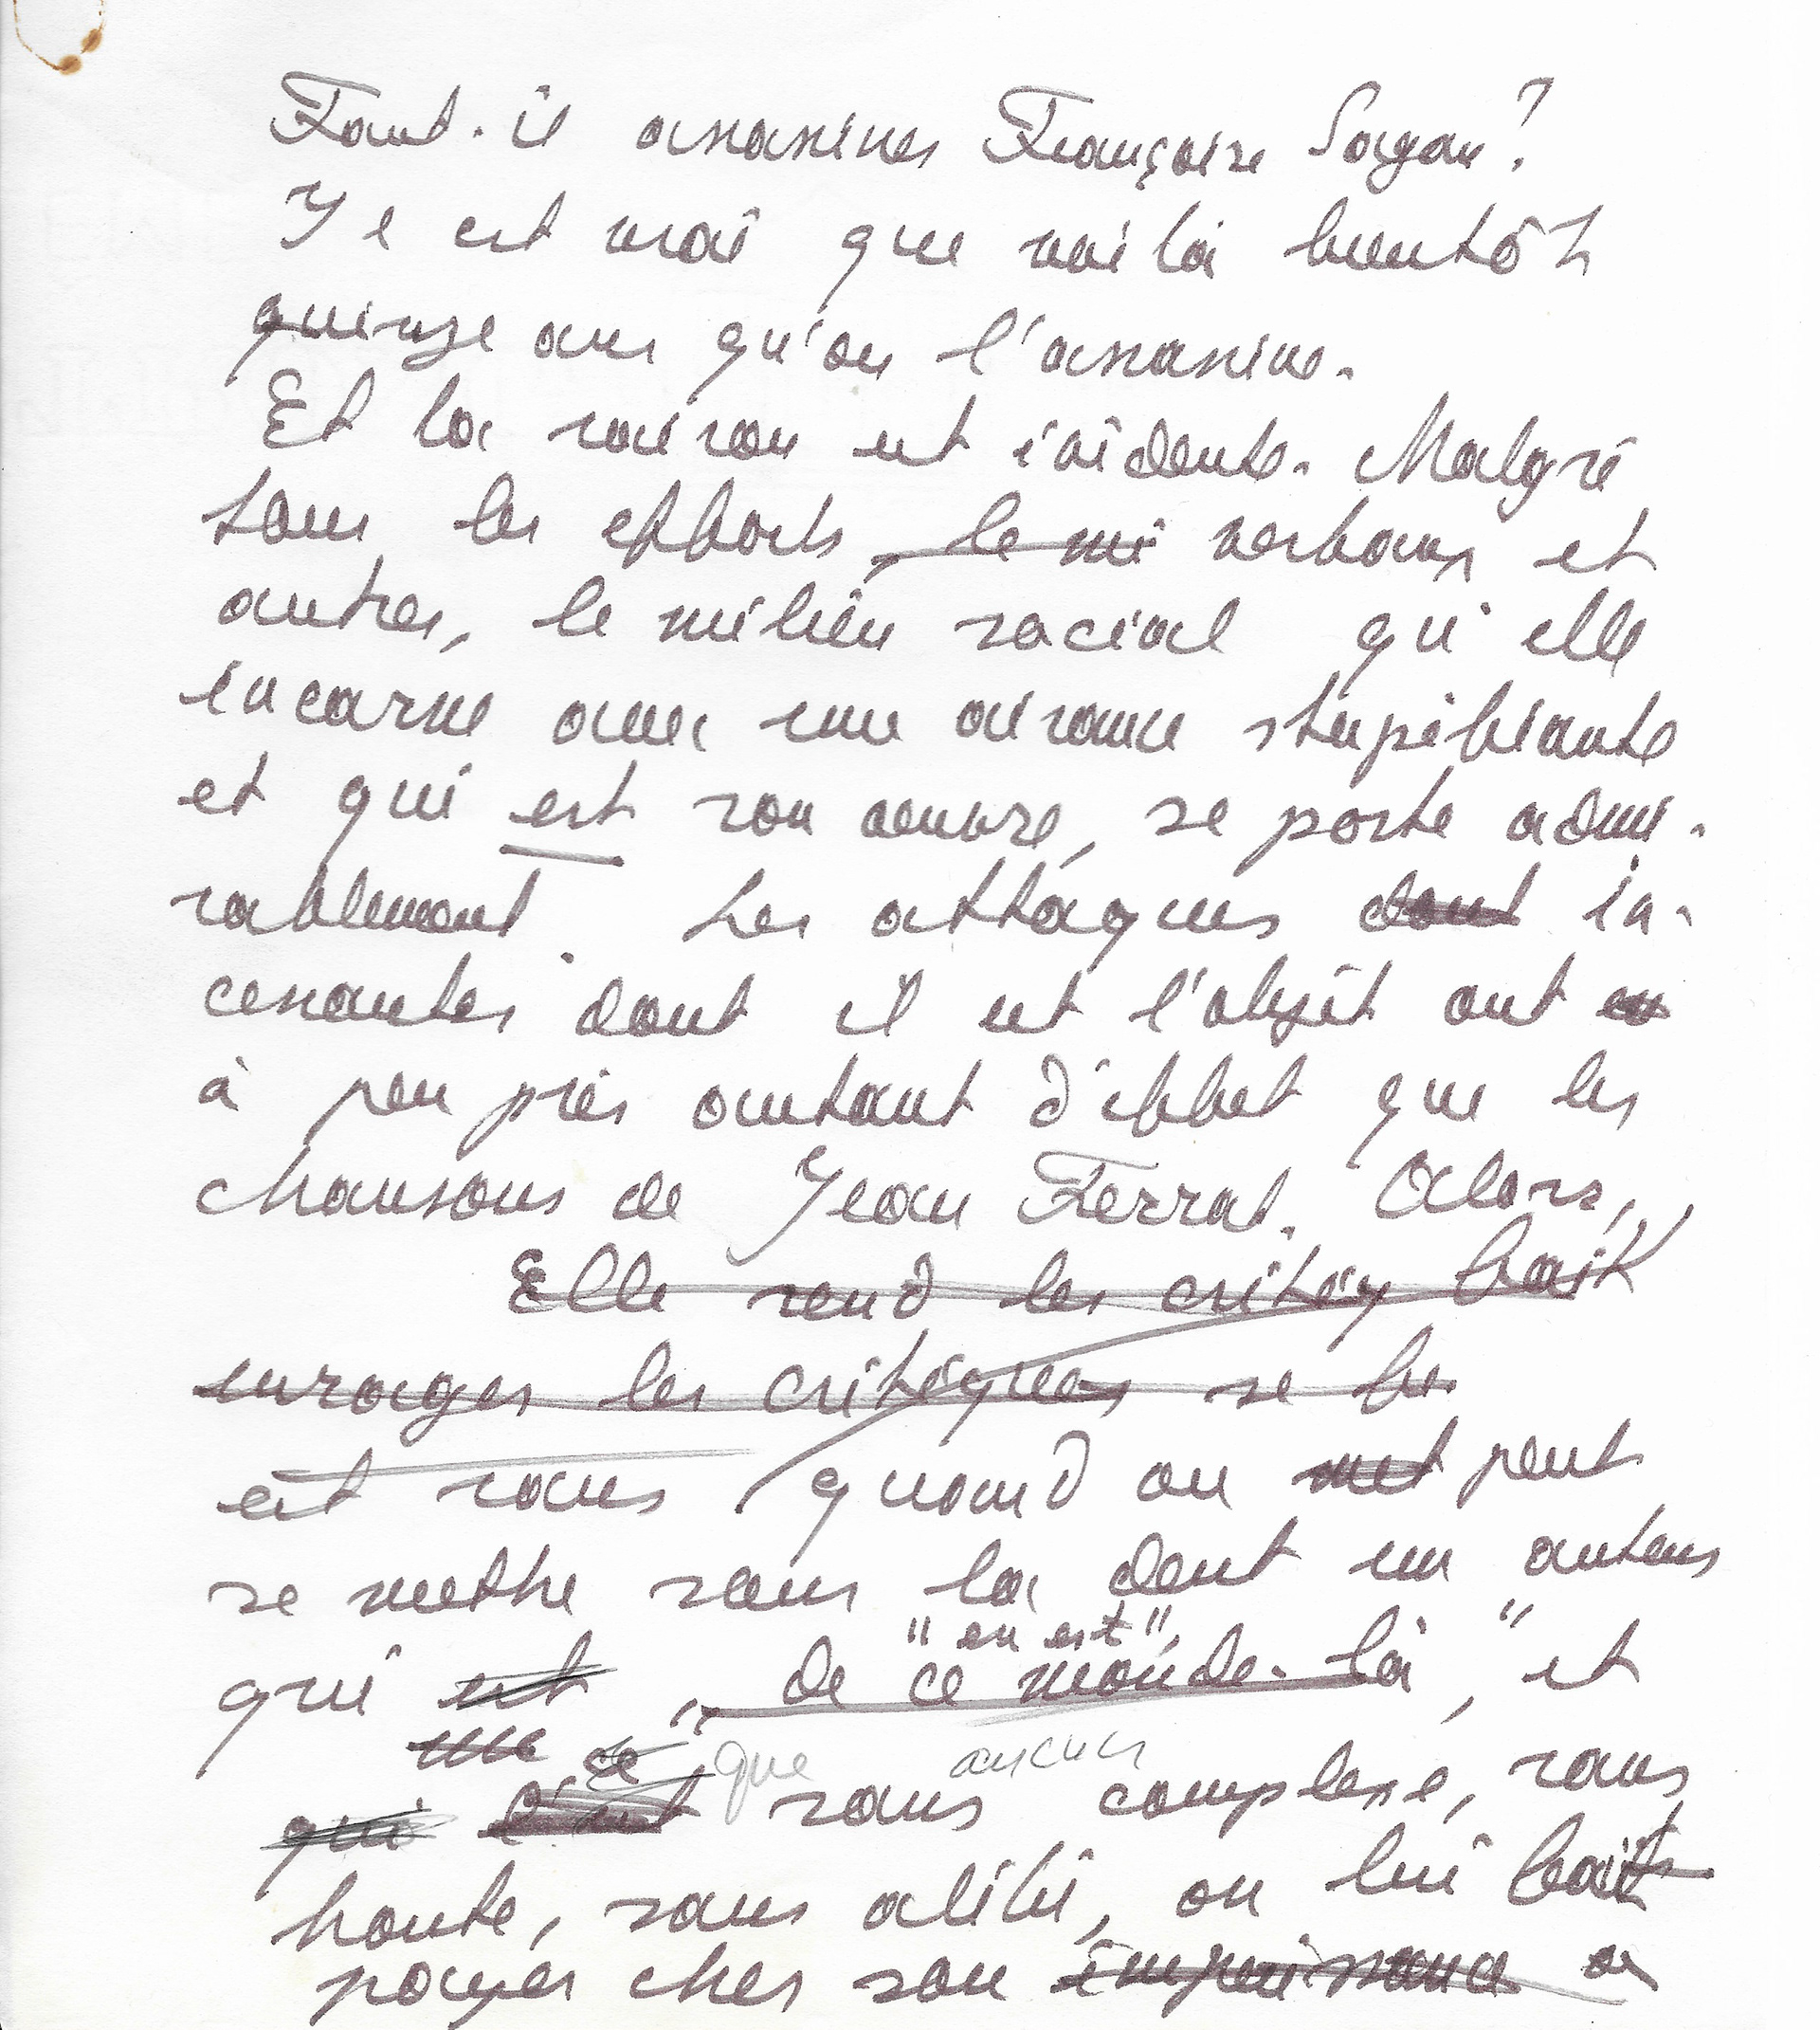 Faut-il assassiner Françoise Sagan?
Il est vrai que voilà bientôt
quinze ans qu'on l'assassine.
Et la raison est évidente. Malgré
tous les efforts, le mi verbaux et
autres, le milieu social qu'elle
incarne avec une aisance stupéfiante
et qui est son oeuvre, se porte admi-
rablement. Les attaques dont in-
cessantes dont il est l'objet ont eu
à peu près autant d'effet que les
chansons de Jean Ferrat. Alors,
Elle rend les critiq fait
enrager les critiques se
est sans quand on met peut
se mettre sous la dent un auteur
"en est",
qui est, de "ce monde-là", et
une se que aucun
qui l'est sans complexe, sans
honte, sans alibi, on lui fait
payer cher son impuissance